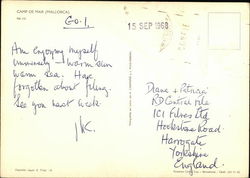 CAMP DE MAR (MALLORCA)
Go. 1.
15 SEP 1969
Am enjoying myself
immensely - warm sun
warm sea. Have
forgotten about filing.
See you next week
Diane + Patricia
Central File
ICI Fibres Ltd
Hookstone Road
Harrogate
Yorkshire
England.